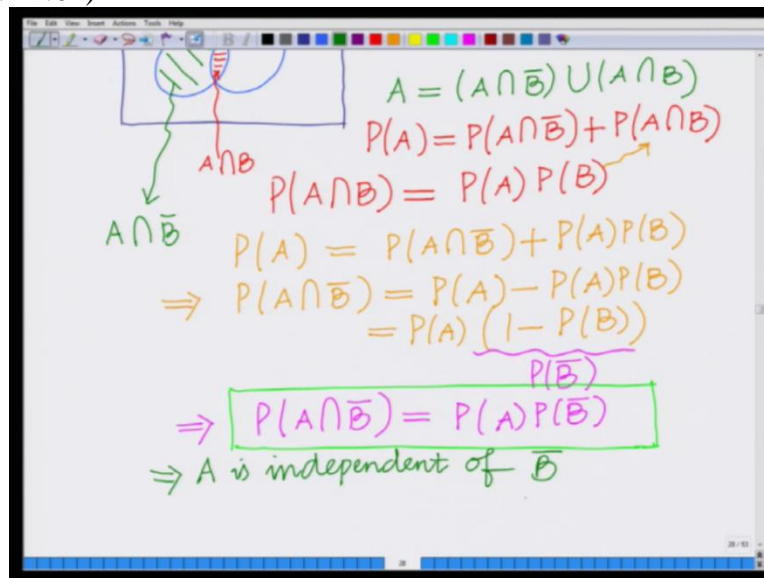 File Edit View Insert Actions Tools Help
A = (A∩B̅) ∪ (A∩B)
P(A) = P(A∩B̅) + P(A∩B)
A∩B
P(A∩B) = P(A) P(B)
A∩B̅
P(A) = P(A∩B̅) + P(A)P(B)
⇒ P(A∩B̅) = P(A) − P(A)P(B)
= P(A) (1 − P(B))
P(B̅)
⇒ P(A∩B̅) = P(A)P(B̅)
⇒ A is independent of B̅
28